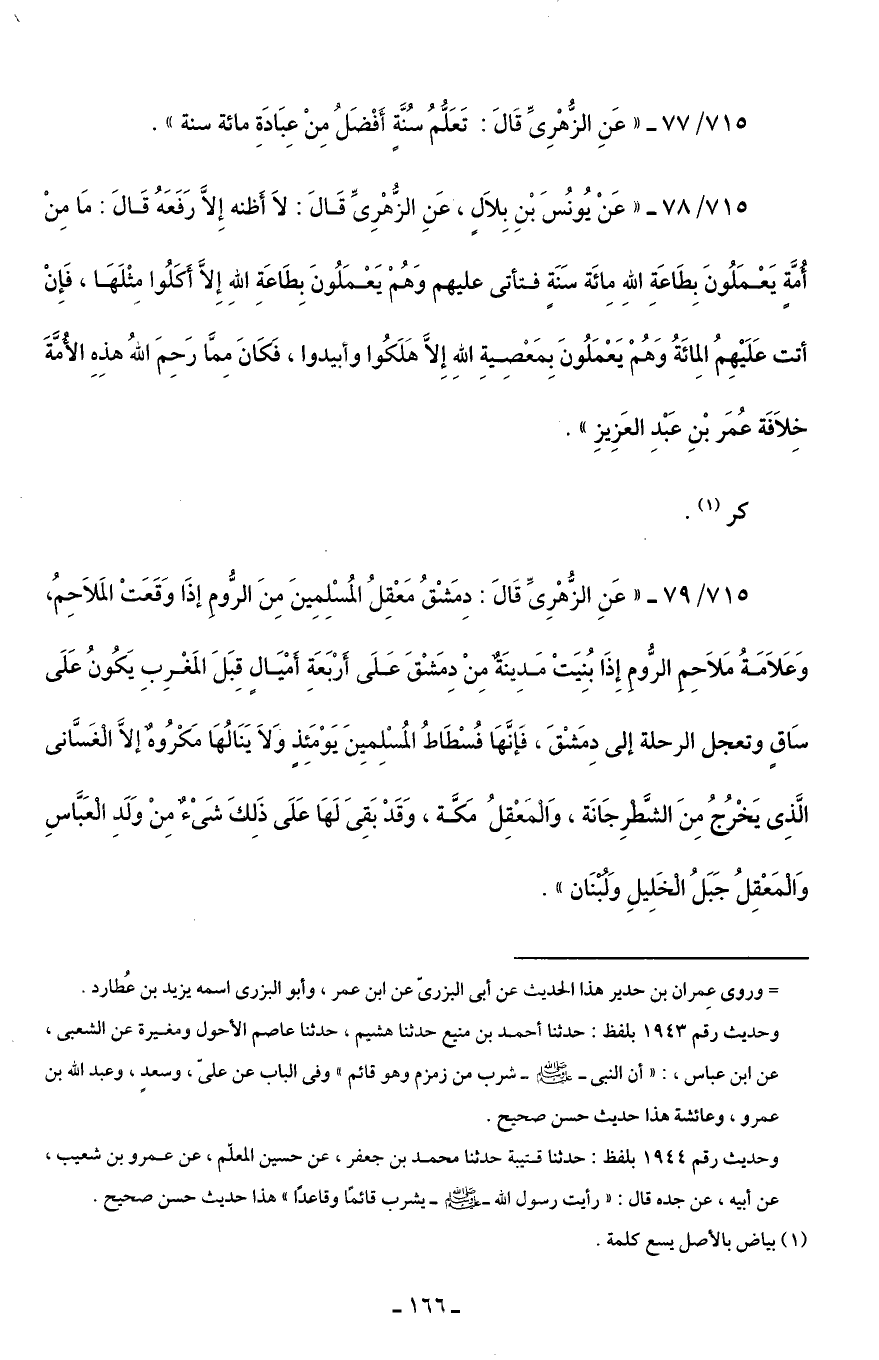 ٧١٥/ ٧٧ ـ « عَنِ الزُّهْرِىِّ قَالَ : تَعَلُّمُ سُنَّةٍ أَفْضَلُ مِنْ عِبَادَةِ مائة سنة » .
٧١٥/ ٧٨ ـ « عَنْ يُونُسَ بْنِ بِلاَلٍ ، عَنِ الزُّهْرِىِّ قَالَ : لاَ أظنه إِلاَّ رَفَعَهُ قَالَ : مَا مِنْ
أُمَّةٍ يَعْمَلُونَ بِطَاعَةِ اللهِ مِائَة سَنَةٍ فتأتى عليهم وَهُمْ يَعْمَلُونَ بِطَاعَةِ اللهِ إِلاَّ أَكَلُوا مِثْلَهَا ، فَإِنْ
أتت عَلَيْهِمُ المِائَةُ وَهُمْ يَعْمَلُونَ بِمَعْصِيةِ اللهِ إِلاَّ هَلَكُوا وأبيدوا ، فَكَانَ مِمَّا رَحِمَ اللهُ هذِهِ الأُمَّةَ
خِلاَفَة عُمَرَ بْنِ عَبْدِ العَزِيزِ » .
كر (١) .
٧١٥/ ٧٩ ـ « عَنِ الزُّهْرِىِّ قَالَ : دِمَشْقُ مَعْقِلُ المُسْلِمِينَ مِنَ الرُّومِ إِذَا وَقَعَتْ المَلاَحِمُ،
وَعَلاَمَةُ مَلاَحِمِ الرُّومِ إِذَا بُنِيَتْ مَدِينَةٌ مِنْ دِمَشْقَ عَلَى أَرْبَعَةِ أَمْيَالٍ قِبَلَ المَغْرِبِ يَكُونُ عَلَى
سَاقٍ وتعجل الرحلة إلى دِمَشْقَ ، فَإِنَّهَا فُسْطَاطُ المُسْلِمِينَ يَوْمَئِذٍ وَلاَ يَنَالُهَا مَكْرُوهٌ إلاَّ الغَسَّانى
الَّذِى يَخْرُجُ مِنَ الشَّطْرِجَانَة ، وَالْمَعْقِلُ مَكَّة ، وَقَدْ بَقِىَ لَهَا عَلَى ذَلِكَ شَىْءٌ مِنْ وَلَدِ الْعَبَّاسِ
وَالْمَعْقِلُ جَبَلُ الْخَلِيلِ وَلُبْنَان » .
= وروى عِمران بن حدير هذا الحديث عن أبى البزرىّ عن ابن عمر ، وأبو البزرى اسمه يزيد بن عُطارد .
وحديث رقم ١٩٤٣ بلفظ : حدثنا أحمد بن منيع حدثنا هشيم ، حدثنا عاصم الأحول ومغيرة عن الشعبى ،
عن ابن عباس ، : « أن النبى ـ ﷺ ـ شرب من زمزم وهو قائم » وفى الباب عن علىّ ، وسعدٍ ، وعبد الله بن
عمرو ، وعائشة هذا حديث حسن صحيح .
وحديث رقم ١٩٤٤ بلفظ : حدثنا قتيبة حدثنا محمد بن جعفر ، عن حسين المعلّم ، عن عمرو بن شعيب ،
عن أبيه ، عن جده قال : « رأيت رسول الله ـ ﷺ ـ يشرب قائمًا وقاعدًا » هذا حديث حسن صحيح .
(١) بياض بالأصل يسع كلمة .
ـ ١٦٦ ـ